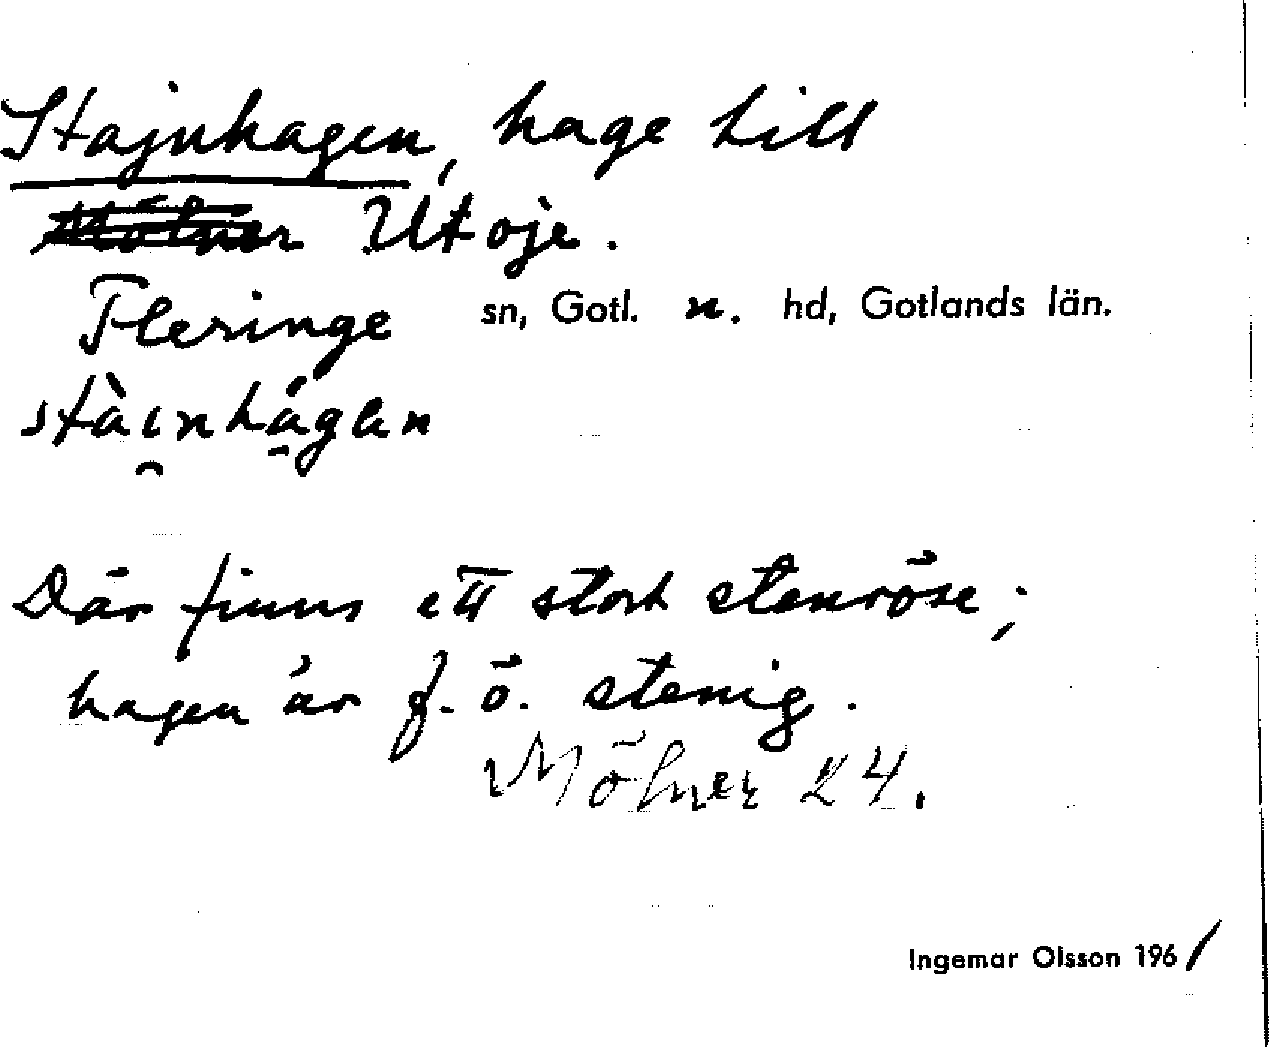 Stajnhagen, hage till
Mölner Utoje.
Fleringe sn, Gotl. n. hd, Gotlands län.
stàinhágen
Där finns ett stort stenröse;
hagen är f. ö. stenig.
Mölner 24.
Ingemar Olsson 1961